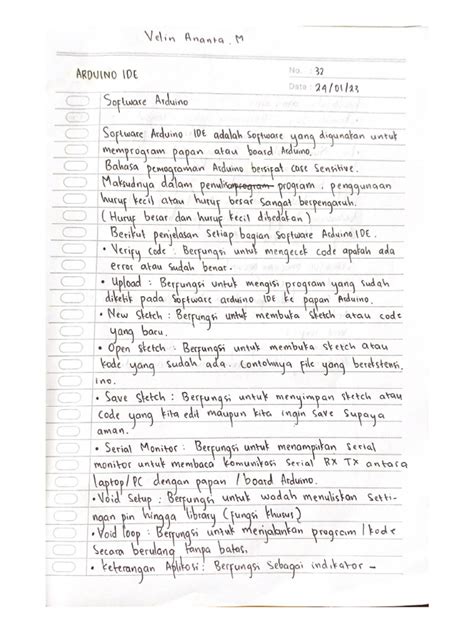 Velin Ananta. M
ARDUINO IDE
No. : 32
Date : 24/01/23
Software Arduino
Software Arduino IDE adalah software yang digunakan untuk
memprogram papan atau board Arduino.
Bahasa pemograman Arduino bersifat case Sensitive.
Maksudnya dalam penulisan program, penggunaan
huruf kecil atau huruf besar sangat berpengaruh.
( Huruf besar dan huruf kecil dibedakan )
Berikut penjelasan Setiap bagian Software Arduino IDE.
• Verify code : Berfungsi untuk mengecek code apakah ada
error atau sudah benar.
• Upload : Berfungsi untuk mengisi program yang sudah
diketik pada software arduino IDE ke papan Arduino.
• New Sketch : Berfungsi untuk membuka Sketch atau code
yang baru.
• Open Sketch : Berfungsi untuk membuka sketch atau
kode yang sudah ada. Contohnya file yang berekstensi.
ino.
• Save Sketch : Berfungsi untuk menyimpan sketch atau
Code yang kita edit maupun kita ingin save Supaya
aman.
• Serial Monitor : Berfungsi untuk menampilkan serial
monitor untuk membaca komunikasi serial RX TX antara
laptop/PC dengan papan / board Arduino.
• Void Setup : Berfungsi untuk wadah menuliskan Sett-
ingan pin hingga library (fungsi khusus)
• Void loop : Berfungsi untuk menjalankan program / kode
Secara berulang tanpa batas.
• Keterangan Aplikasi : Berfungsi Sebagai indikator -